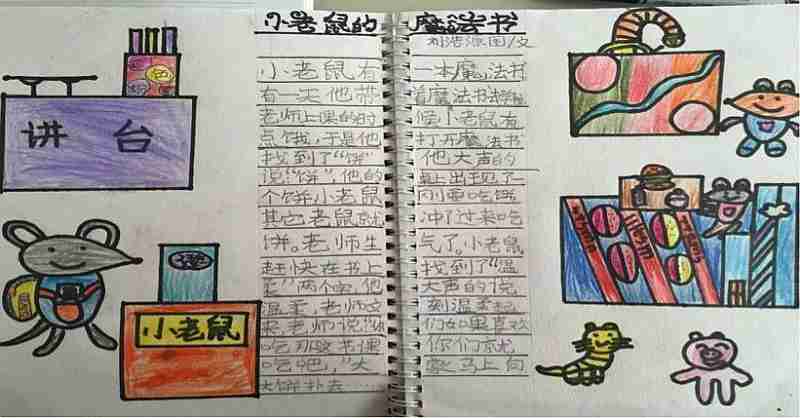 小老鼠的 魔法书
图/文
小老鼠有 一本魔法书
有一天他带 着魔法书去学校
老师上课的时 候小老鼠有
点饿,于是他 打开魔法书
找到了“饼” 他大声的
说“饼”,他的 桌上出现了
个饼小老鼠 刚要吃饼
其它老鼠就 冲了过来吃
饼。老师生 气了。小老鼠
赶快在书上 找到了“温
柔”两个字,他 大声的说
温柔,老师立 刻温柔起
来,老师说“你 们如果喜欢
吃那这节课 你们就
吃吧,”大 家马上向
大饼扑去……
讲 台
小老鼠